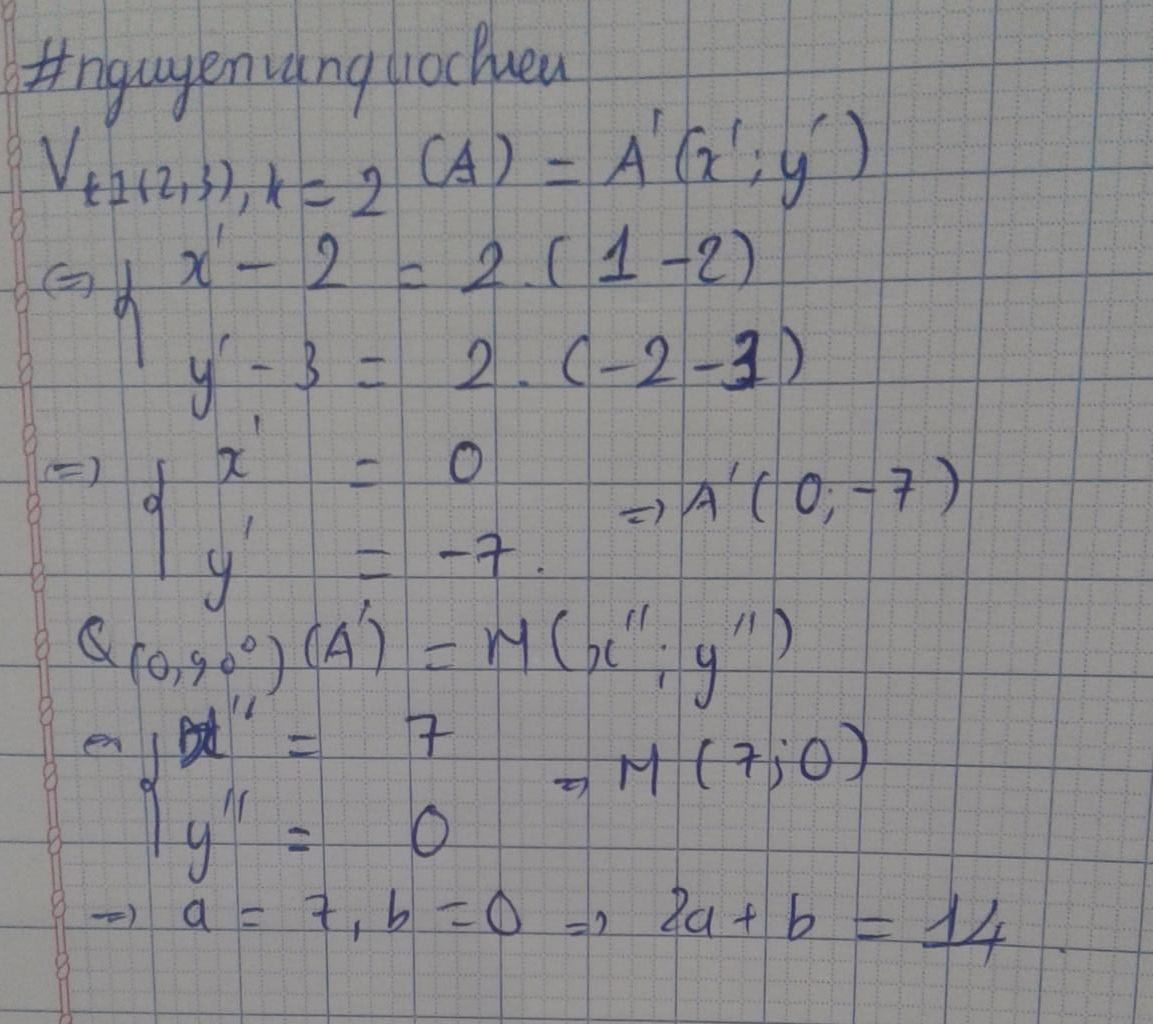 #nguyenvanquochieu
V(I(2,3), k = 2 (A) = A'(x'; y')
<=> { x' - 2 = 2 . (1 - 2)
y' - 3 = 2 . (-2 - 3)
=> { x' = 0
=> A'(0; -7)
y' = -7.
Q(0,90°) (A') = M(x''; y'')
=> { x'' = 7
=> M (7; 0)
y'' = 0
=> a = 7, b = 0 => 2a + b = 14.